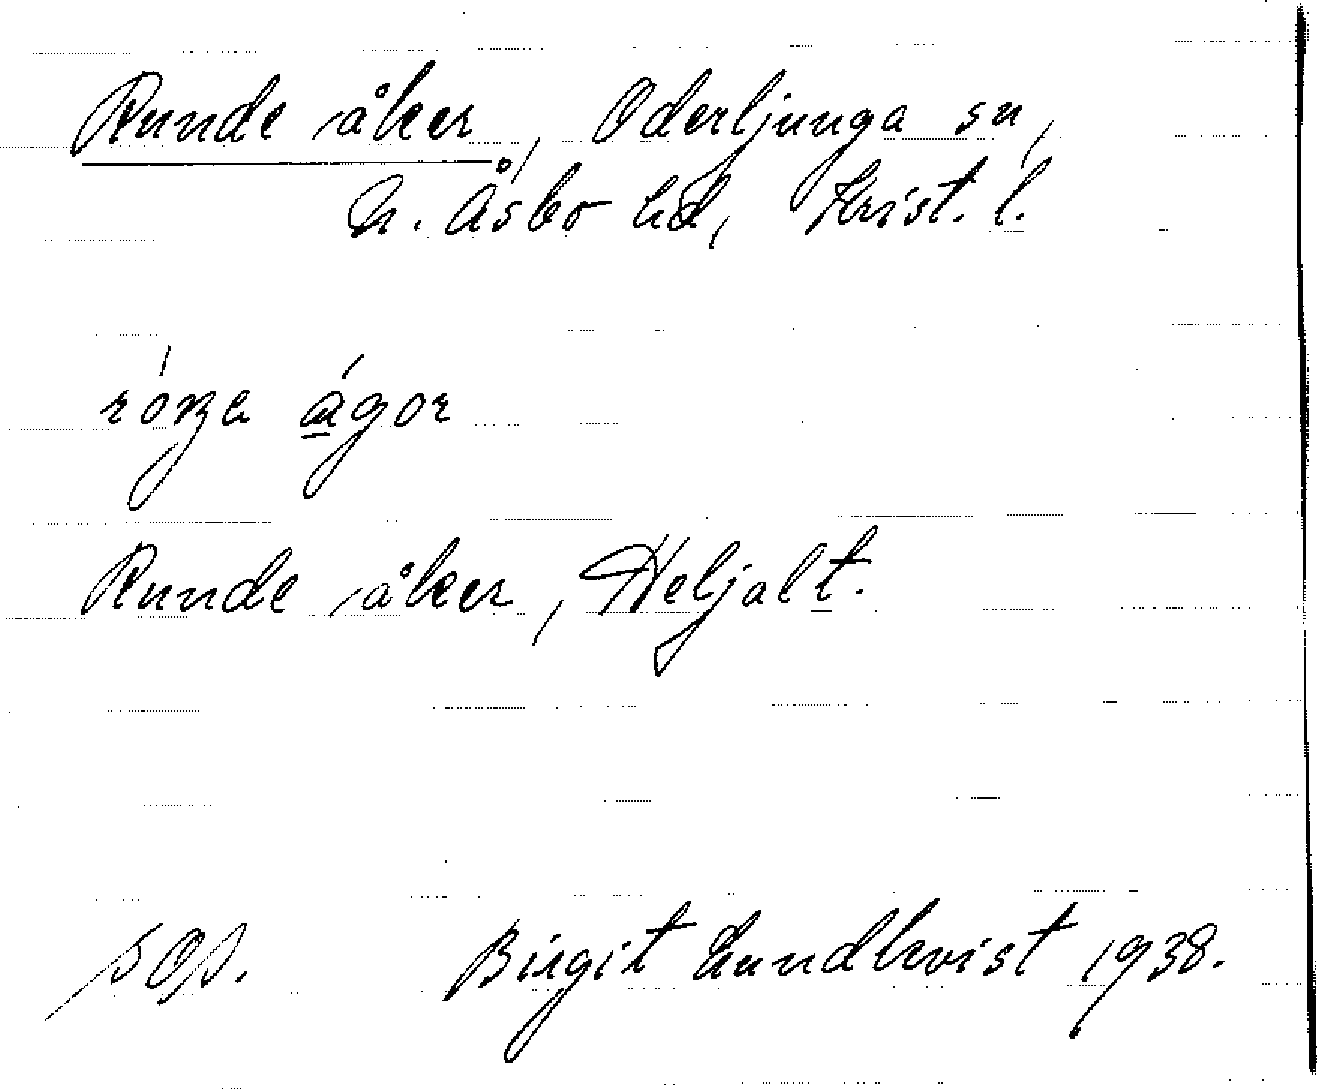 Runde åker, Oderljunga sn,
N. Åsbo hd, Krist. l.
Runde åker, Heljalt.
sos. Birgit Lundkvist 1938.